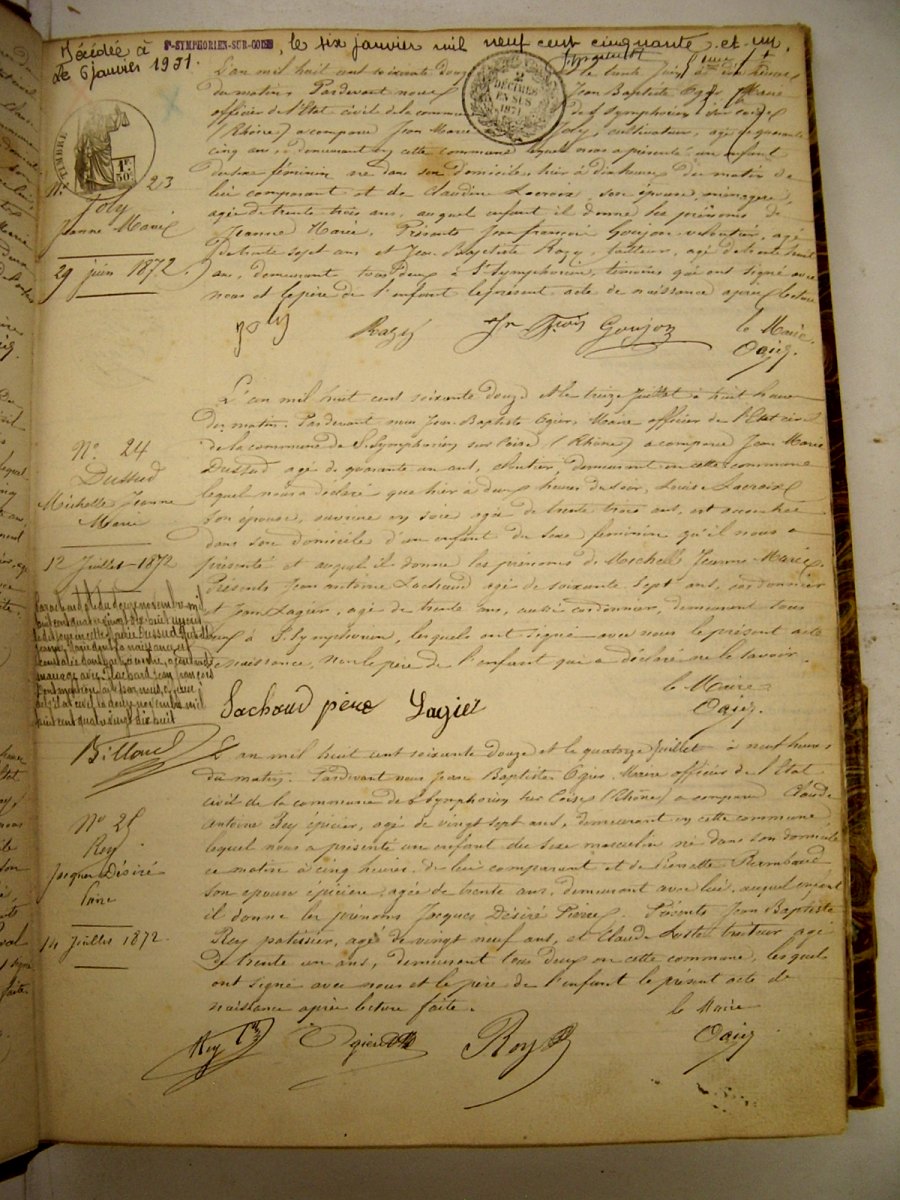 Décédée à St-SYMPHORIEN-SUR-COISE, le six janvier mil neuf cent cinquante et un.
Le 6 janvier 1951.
TIMBRE
1F 50c
2 DÉCIMES EN SUS 1871
N. 23
Joly
Jeanne Marie
29 juin 1872
L'an mil huit cent soixante douze le trente Juin à heures
du matin. Pardevant nous Jean Baptiste Ogier, Maire
officier de l'Etat civil de la commune de St Symphorien sur Coise
(Rhône) a comparu Jean Marie Joly, cultivateur, agé de quarante
cinq ans, demeurant en cette commune lequel nous a présenté un enfant
du sexe féminin né dans son domicile, hier à dix heures du matin de
lui comparant et de Claudine Lacroix, son épouse, ménagère,
agée de trente trois ans, auquel enfant il donne les prénoms de
Jeanne Marie. Présents Jean François Goujon, agé
de trente sept ans et Jean Baptiste Razy, agé de trente
ans, demeurant tous deux à St Symphorien, témoins qui ont signé avec
nous et le père de l'enfant le présent acte de naissance après lecture
Joly Razy Jn Fçois Goujon le Maire
Ogier
N° 24
Dussud
Michelle Jeanne
Marie
12 Juillet 1872
L'an mil huit cent soixante douze et le treize Juillet à huit heures
du matin. Pardevant nous Jean Baptiste Ogier, Maire officier de l'Etat civil
de la commune de St Symphorien sur Coise (Rhône) a comparu Jean Marie
Dussud agé de quarante un ans, cloutier, demeurant en cette commune
lequel nous a déclaré que hier à deux heures du soir, Louise Lacroix
son épouse, ouvrière en soie agée de trente trois ans, est accouchée
dans son domicile d'un enfant du sexe féminin qu'il nous a
présenté et auquel il donne les prénoms de Michelle Jeanne Marie
Présents Jean Antoine Lachaud agé de soixante sept ans, cordonnier
et Jean Lagier, agé de trente ans, aussi cordonnier, demeurant tous
deux à St Symphorien, lesquels ont signé avec nous le présent acte
de naissance, non le père de l'enfant qui a déclaré ne le savoir.
le Maire
Lachaud père Lagier Ogier
Par acte du douze novembre mil
huit cent quatre vingt dix huit
Dussud Michelle
Jeanne Marie dont la naissance est
constatée dans l'acte ci contre, a contracté
mariage avec Jean François
le douze novembre mil
huit cent quatre vingt dix huit
Billard
N° 25
Rey
Jacques Désiré
Pierre
14 Juillet 1872.
L'an mil huit cent soixante douze et le quatorze Juillet à neuf heures
du matin. Pardevant nous Jean Baptiste Ogier. Maire officier de l'Etat
civil de la commune de St Symphorien sur Coise (Rhône) a comparu Claude
Antoine Rey épicier, agé de vingt sept ans, demeurant en cette commune,
lequel nous a présenté un enfant du sexe masculin né dans son domicile
ce matin à cinq heures. de lui comparant et de Pierrette Rambaud
son épouse épicière, agée de trente ans, demeurant avec lui, auquel enfant
il donne les prénoms Jacques Désiré Pierre. Présents Jean Baptiste
Rey patissier, agé de vingt neuf ans, et Claude traiteur agé
de trente un ans, demeurant tous deux en cette commune, lesquels
ont signé avec nous et le père de l'enfant le présent acte de
naissance après lecture faite.
le Maire
Rey Rey Ogier